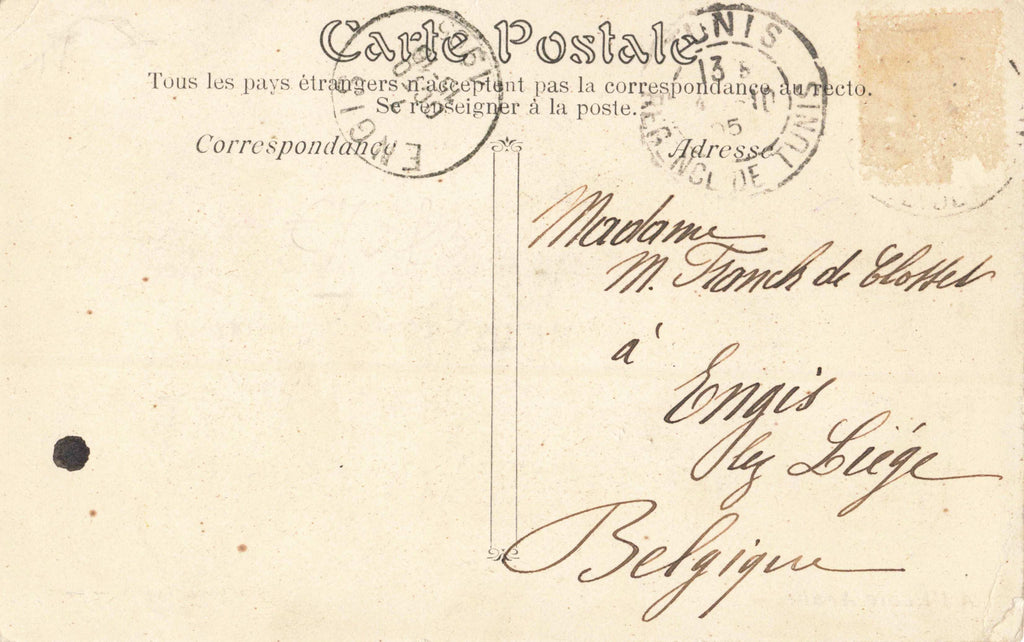 Carte Postale
Tous les pays étrangers n'acceptent pas la correspondance au recto.
Se renseigner à la poste.
Correspondance
Adresse
ENGIS
TUNIS
13
4 -10
05
REGENCE DE TUNIS
Madame
M. Franck de Closset
à
Engis
lez Liége
Belgique